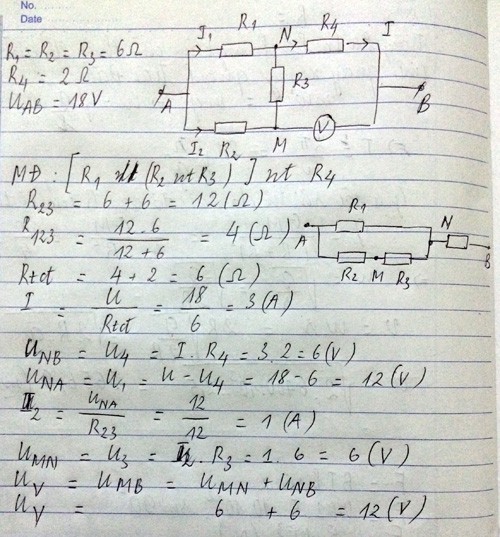 No.
Date
R₁ = R₂ = R₃ = 6Ω
R₄ = 2 Ω
U_AB = 18V
I₁ R₁ N R₄ I
R₃
A B
I₂ R₂ M V
MĐ : [R₁ // (R₂ nt R₃)] nt R₄
R₂₃ = 6 + 6 = 12 (Ω)
R₁₂₃ = 12.6 / 12+6 = 4 (Ω)
Rtđt = 4 + 2 = 6 (Ω)
I = U / Rtđt = 18 / 6 = 3 (A)
R₁ N
A
R₂ M R₃ B
U_NB = U₄ = I. R₄ = 3. 2 = 6 (V)
U_NA = U₁ = U - U₄ = 18 - 6 = 12 (V)
I₂ = U_NA / R₂₃ = 12 / 12 = 1 (A)
U_MN = U₃ = I₂ . R₃ = 1. 6 = 6 (V)
U_V = U_MB = U_MN + U_NB
U_V = 6 + 6 = 12 (V)